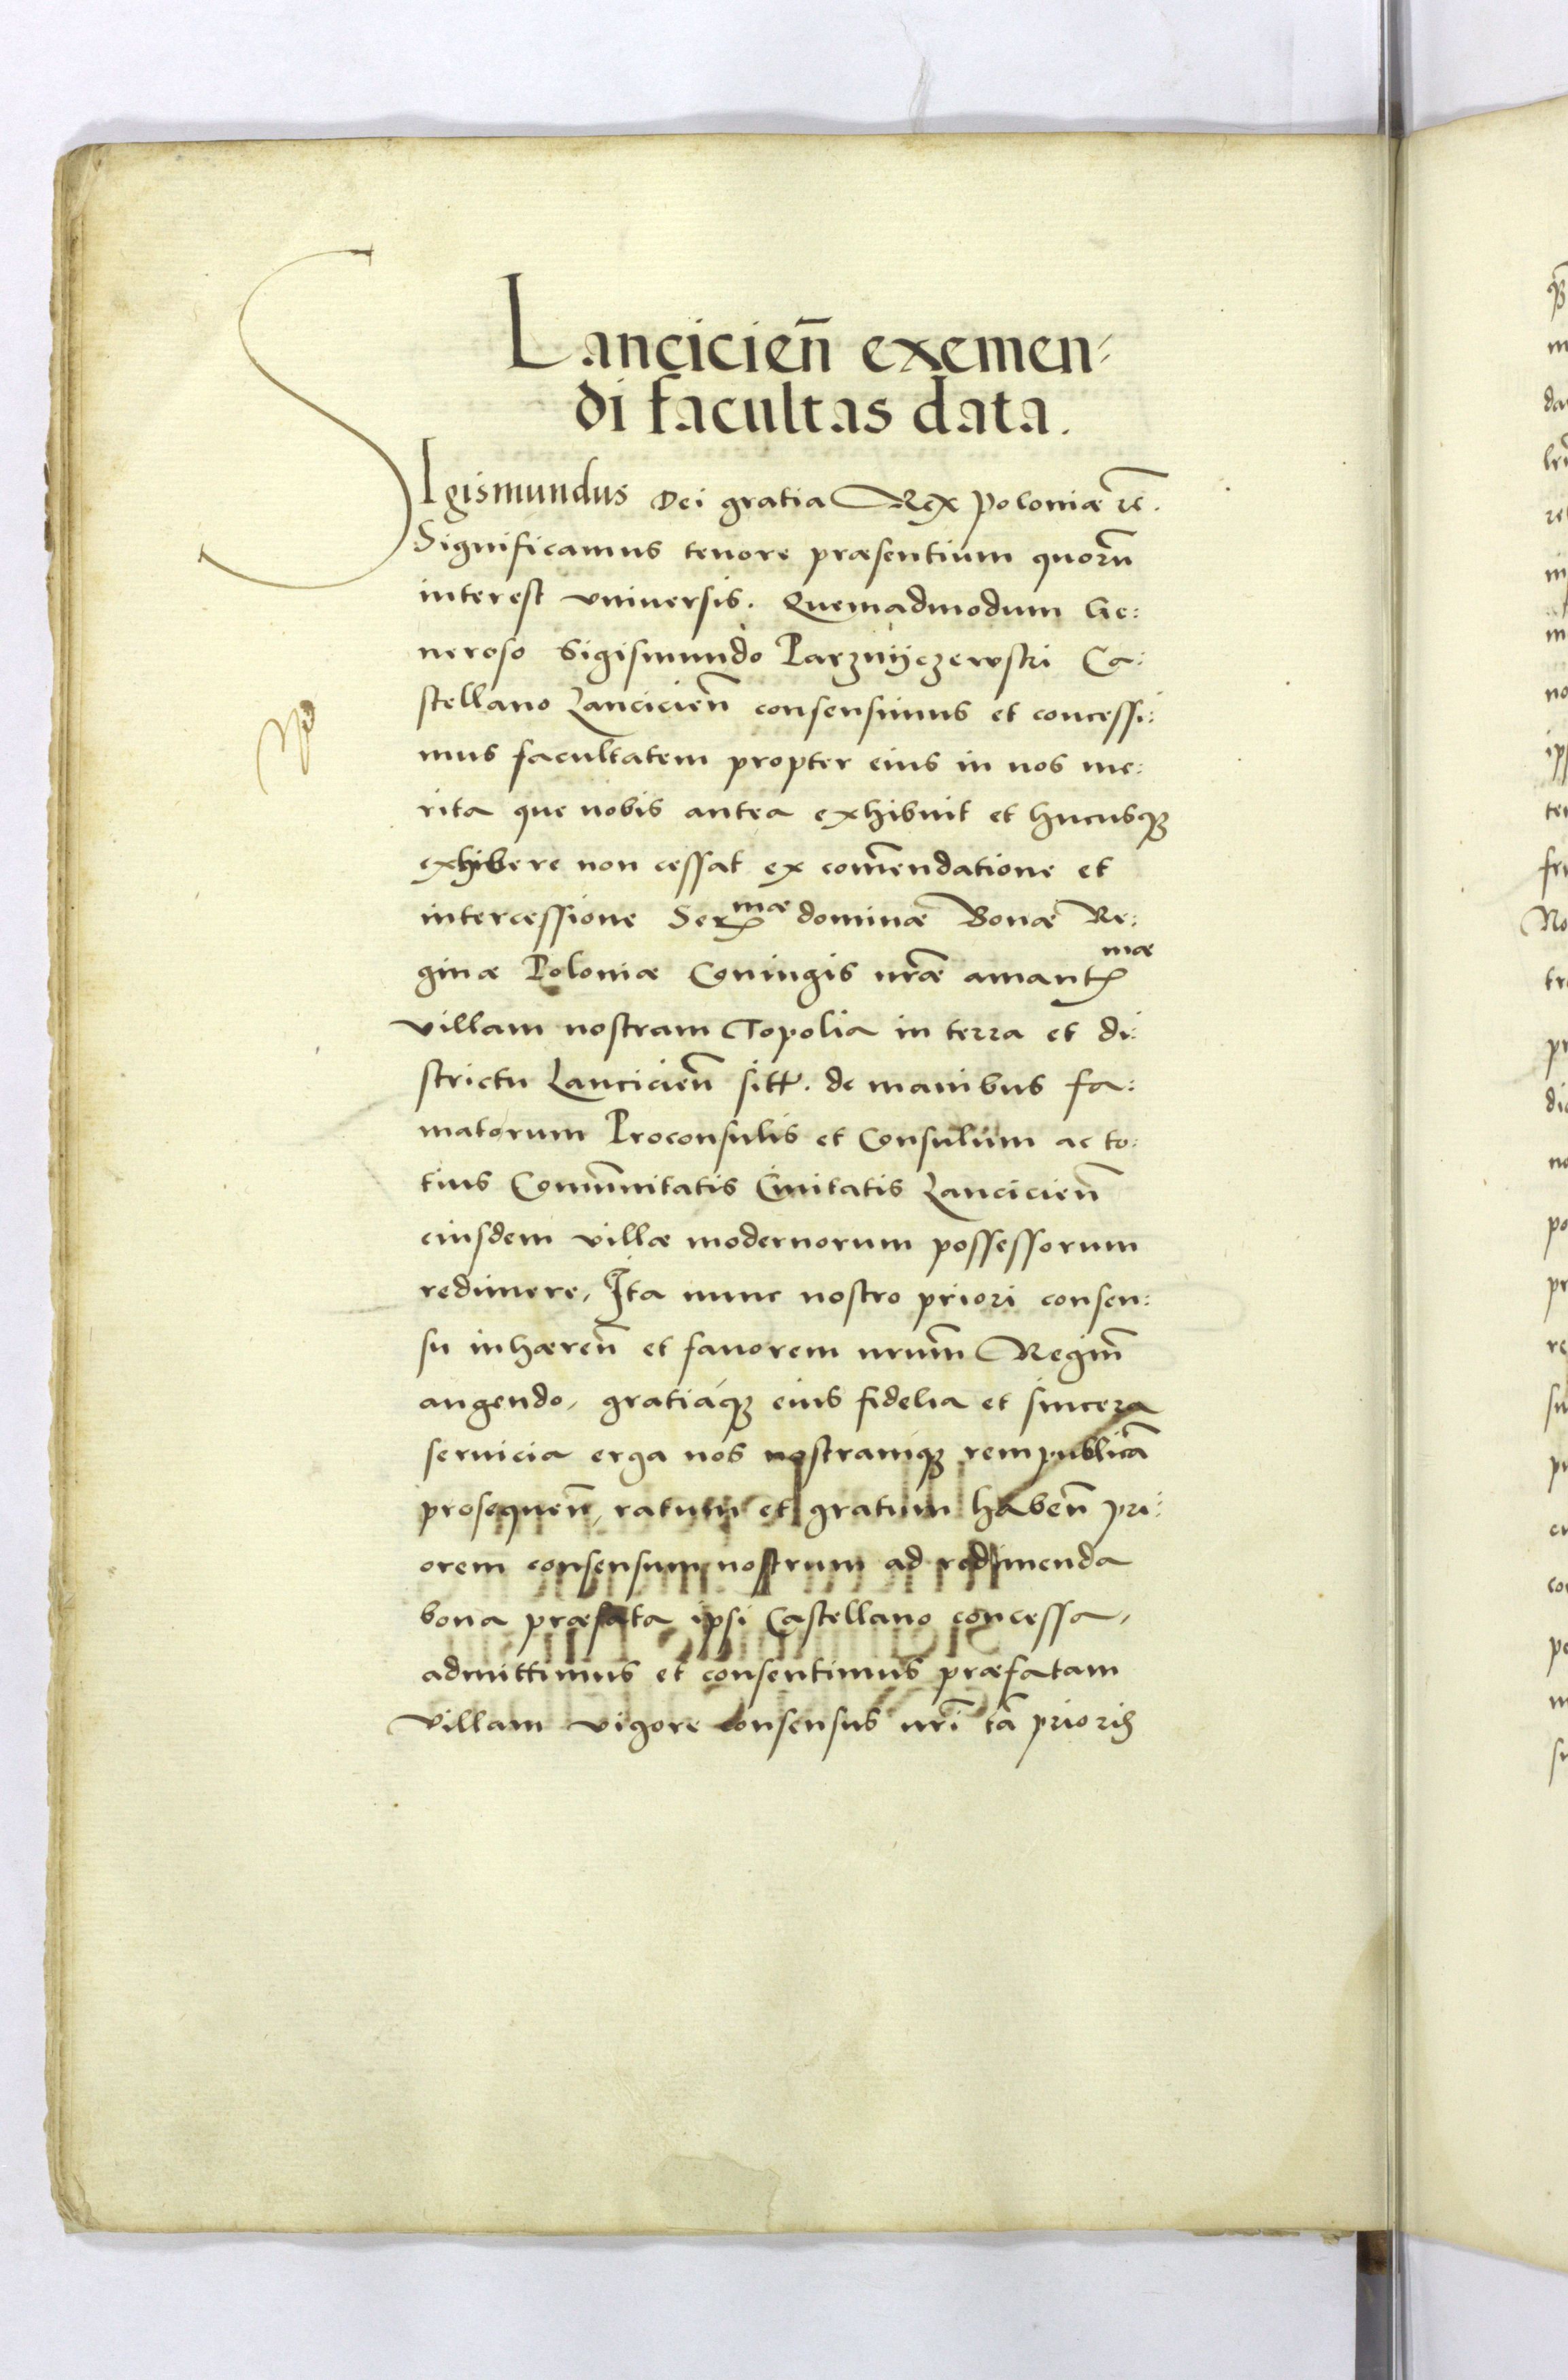 Lancicien̄ exemen⸗
di facultas data.
SIgismundus Dei gratia Rex Poloniæ ꝛc̄.
Significamus tenore præsentium quorū
interest vniuersis. Quemadmodum Ge:
neroso Sigismundo Parznijczewski Ca:
stellano Lancicien̄ consensimus et concessi:
mus facultatem propter eius in nos me:
rita que nobis antea exhibuit et hucusqꝫ
exhibere non cessat ex com̄endatione et
intercessione Serᵐᵃᵉ dominæ Bonæ Re:
ginæ Poloniæ Coniugis nr̄æ amantᵐᵃᵉ
villam nostram Topolia in terra et di:
strictu Lancicien̄ sitt. de manibus fa:
matorum Proconsulis et Consulum ac to:
tius Com̄unitatis Ciuitatis Lancicien̄
eiusdem villæ modernorum possessorum
redimere, Ita nunc nostro priori consen:
su inhæren̄ et fauorem nr̄um Regiū
augendo, gratiáqꝫ eius fidelia et sincera
seruicia erga nos nostramqꝫ rempublicā
prosequen̄, ratum et gratum haben̄ pri:
orem consensum nostrum ad redimenda
bona præfata ipsi Castellano concessa,
admittimus et consentimus præfatam
villam vigore consensus nr̄i tā prioris